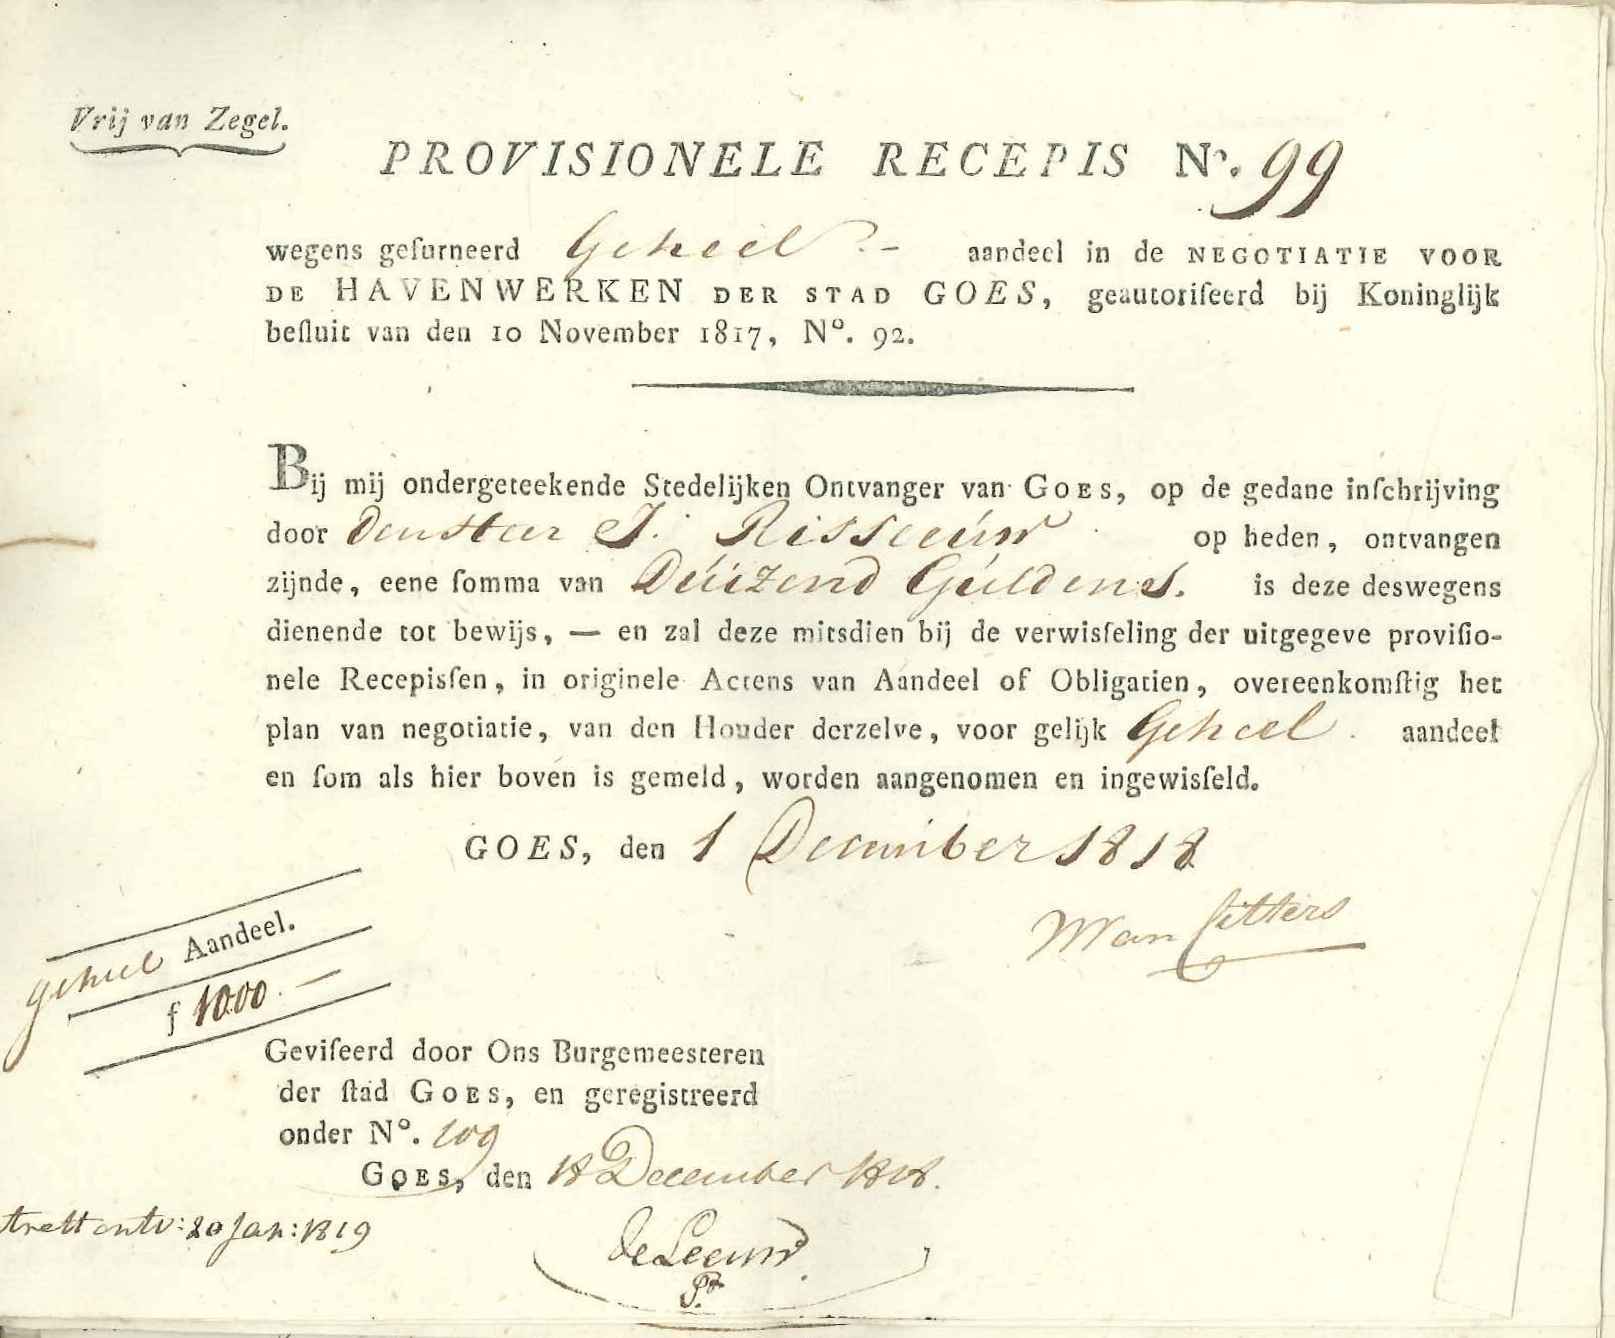 Vrij van Zegel.
PROVISIONELE RECEPIS Nº. 99
wegens gefurneerd Geheel aandeel in de NEGOTIATIE VOOR
DE HAVENWERKEN DER STAD GOES, geautoriſeerd bij Koninglijk
beſluit van den 10 November 1817, Nº. 92.
Bij mij ondergeteekende Stedelijken Ontvanger van GOES, op de gedane inſchrijving
door den Heer J. Risseeuw op heden, ontvangen
zijnde, eene ſomma van Duizend Guldens. is deze deswegens
dienende tot bewijs, — en zal deze mitsdien bij de verwisſeling der uitgegeve proviſio-
nele Recepisſen, in originele Actens van Aandeel of Obligatien, overeenkomſtig het
plan van negotiatie, van den Houder derzelve, voor gelijk Geheel aandeel
en ſom als hier boven is gemeld, worden aangenomen en ingewisſeld.
GOES, den 1 December 1818
WVan Citters
geheel Aandeel.
f 1000.—
Geviſeerd door Ons Burgemeesteren
der ſtad GOES, en geregistreerd
onder Nº. 109
GOES, den 18 December 1818.
ontv: 20 Jan: 1819
de Leeuw
Pt.